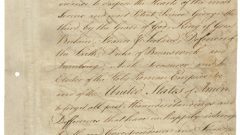 to dispose the Hearts of the most
Serene and most Potent Prince George the
third by the Grace of God, King of Great
Britain, France & Ireland, Defender of
the Faith, Duke of Brunswick and
Lunebourg, Arch Treasurer and
Elector of the Holy Roman Empire
of the United States of America
to forget all past Misunderstandings and
Differences that have unhappily interrupted
Correspondence and